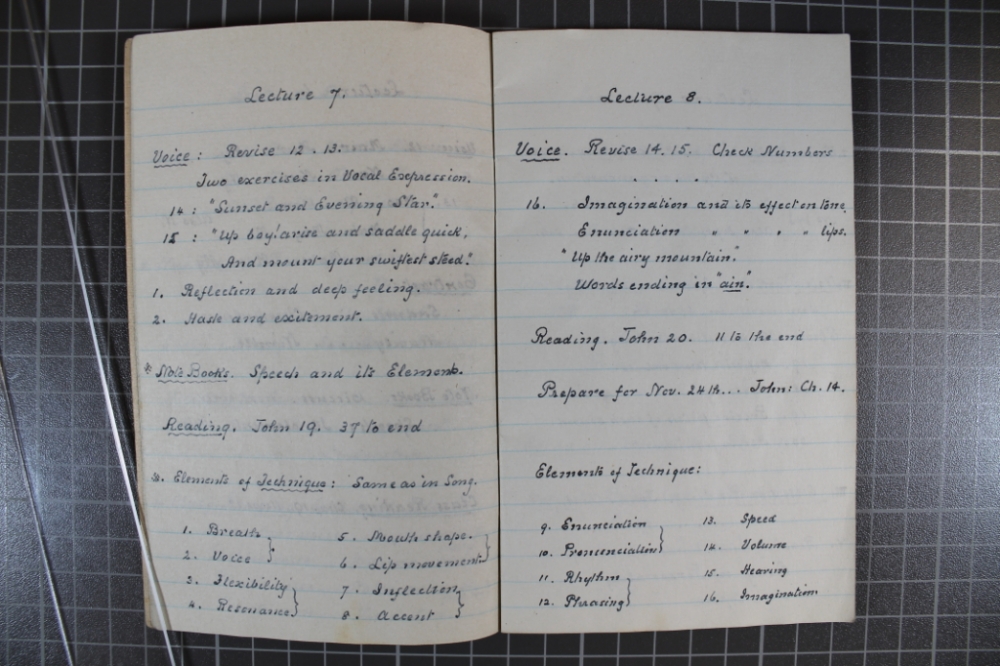 Lecture 7.
Voice: Revise 12. 13.
Two exercises in Vocal Expression.
14: "Sunset and Evening Star."
15: "Up boy! arise and saddle quick,
And mount your swiftest steed."
1. Reflection and deep feeling.
2. Haste and excitement.
* Note Books. Speech and its Elements.
Reading. John 19. 37 to end
*. Elements of Technique: Same as in Song.
1. Breath
2. Voice
3. Flexibility
4. Resonance
5. Mouth shape.
6. Lip movement
7. Inflection
8. Accent
Lecture 8.
Voice. Revise 14. 15. Check Numbers
. . . .
16. Imagination and its effect on tone.
Enunciation " " " " lips.
"Up the airy mountain."
Words ending in "ain".
Reading. John 20. 11 to the end
Prepare for Nov. 24th... John: Ch. 14.
Elements of Technique:
9. Enunciation
10. Pronunciation
11. Rhythm
12. Phrasing
13. Speed
14. Volume
15. Hearing
16. Imagination